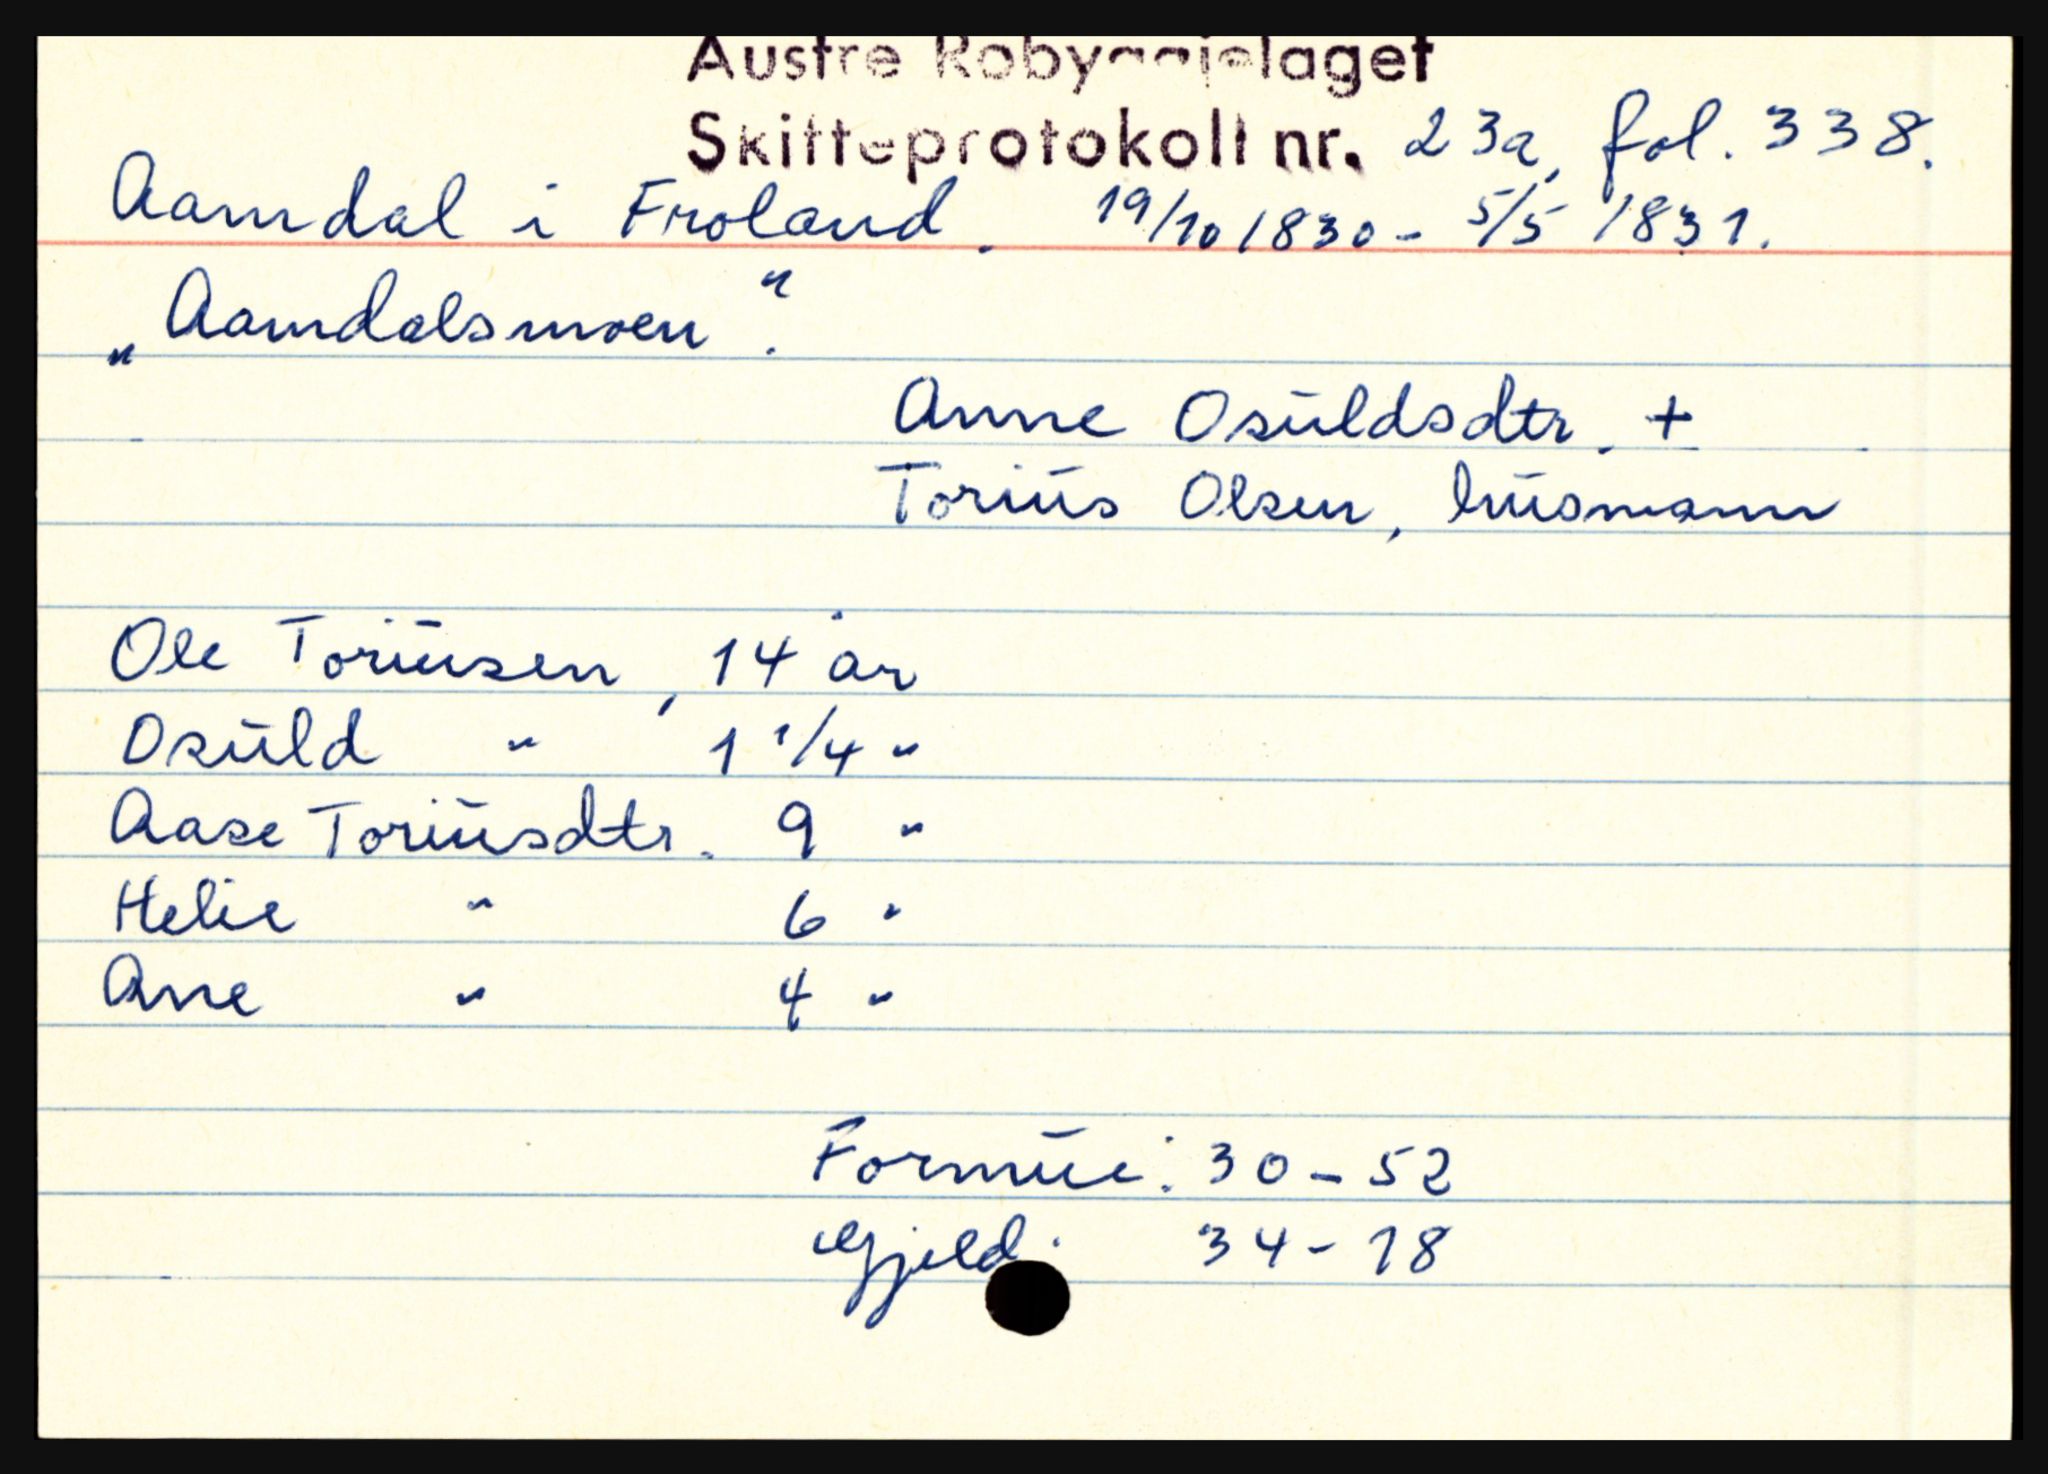 Austre Robyggjelaget
Skifteprotokoll nr. 23a, fol. 338.
Aamdal i Froland. 19/10 1830 - 5/5 1831.
„Aamdalsmoen“.
Anne Osuldsdtr. +
Torius Olsen, husmann
Ole Toriusen, 14 år
Osuld " 1 1/4 "
Aase Toriusdtr. 9 "
Helie " 6 "
Ane " 4 "
Formue: 30 - 52
Gjeld: 34 - 18